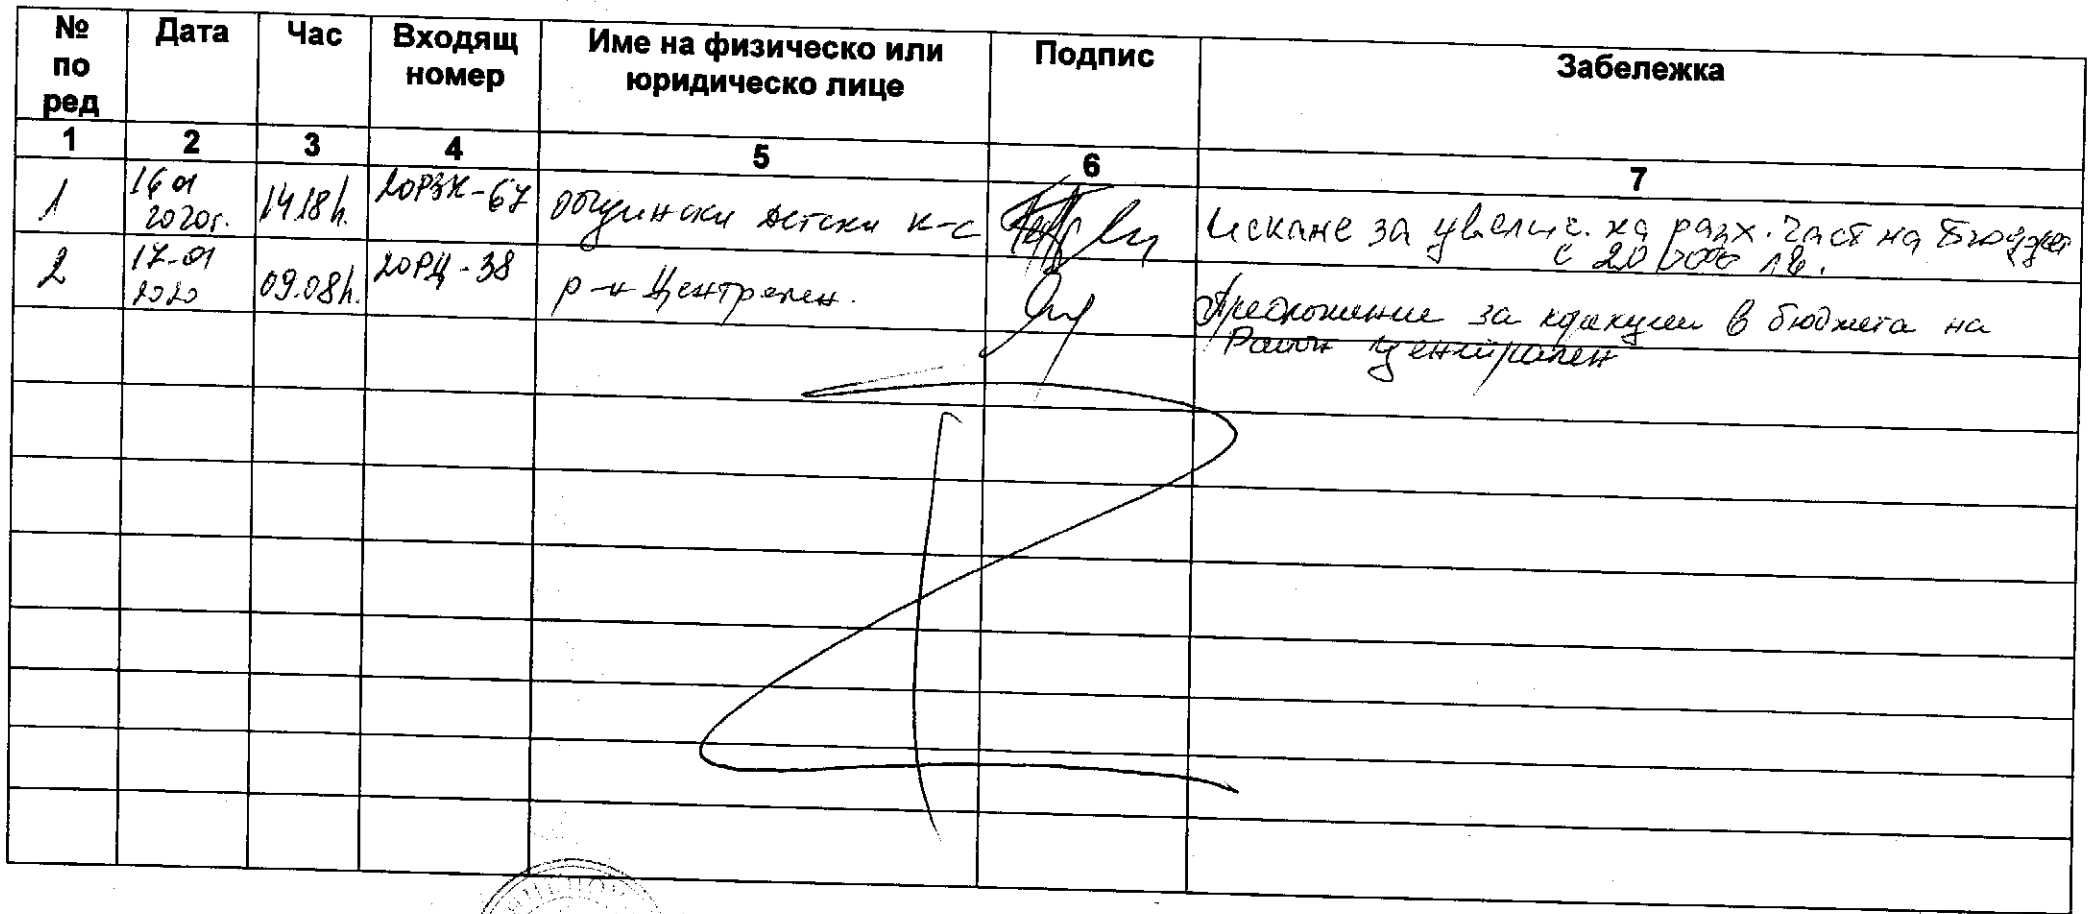 № по ред Дата Час Входящ номер Име на физическо или юридическо лице Подпис Забележка
1 2 3 4 5 6 7
1 16 01 2020г. 14 18 h. 20РЗК-67 общински детски к-с Искане за увелич. на разх. част на бюджет
с 20 000 лв.
2 17-01 2020 09.08 h. 20РЦ-38 р-н Централен. Предложение за корекции в бюджета на
Район Централен